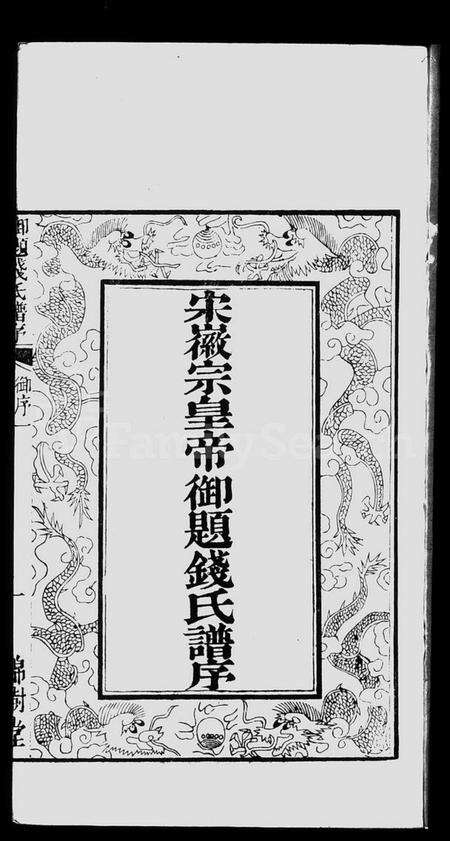 宋徽宗皇帝御題錢氏譜序
御題錢氏譜序
御序
一
錦樹堂
FamilySearch